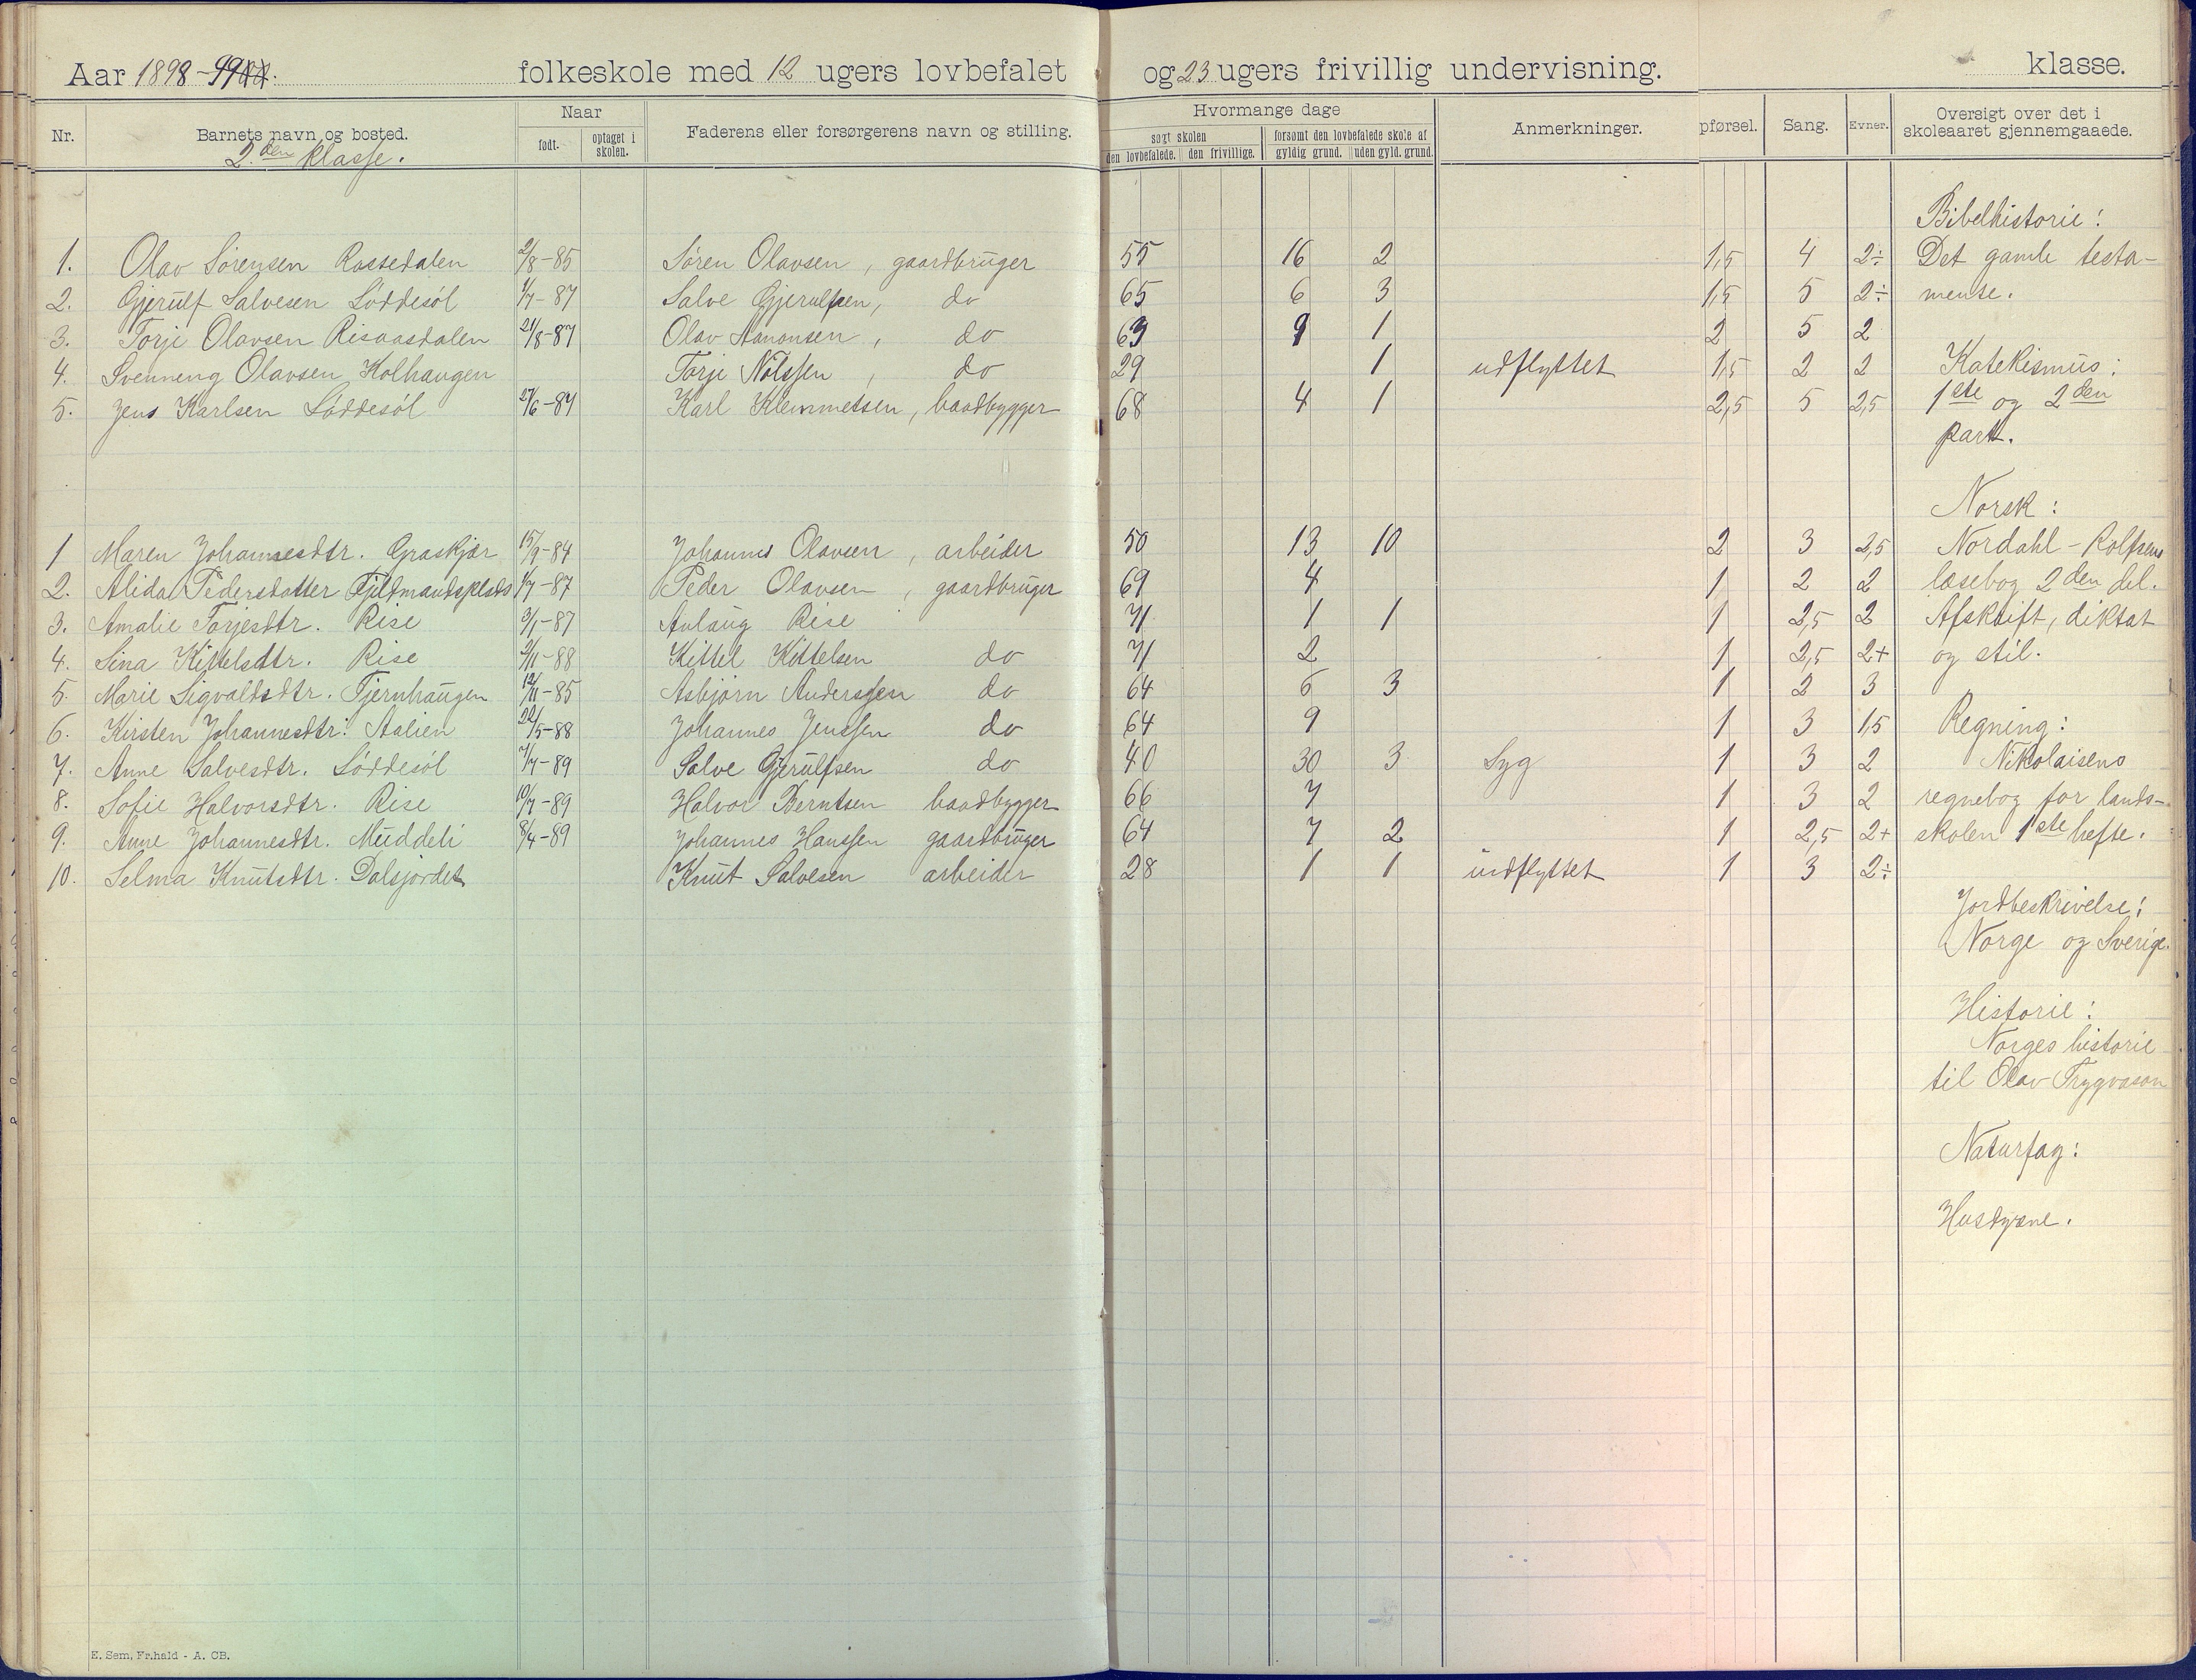 Aar 1898-99 folkeskole med 12 ugers lovbefalet og 23 ugers frivillig undervisning. klasse.
Nr. Barnets navn og bosted. Naar født. optaget i skolen. Faderens eller forsørgerens navn og stilling. Hvormange dage søgt skolen den lovbefalede. den frivillige. forsømt den lovbefalede skole af gyldig grund. uden gyld. grund. Anmerkninger. pførsel. Sang. Evner. Oversigt over det i skoleaaret gjennemgaaede.
2.den klasse.
Bibelhistorie:
1. Olav Sørensen Rossedalen 2/8-85 Søren Olavsen, gaardbruger 55 16 2 1,5 4 2÷ Det gamle testa-
2. Gjerulf Salvesen Løddesøl 1/7-87 Salve Gjerulfsen, do 65 6 3 1,5 5 2÷ mente.
3. Torje Olavsen Risaasdalen 21/8-87 Olav Aanonsen, do 63 9 1 2 5 2
4. Svenning Olavsen Holhaugen Torje Nilssen, do 29 1 udflyttet 1,5 2 2 Katekismus:
5. Jens Karlsen Løddesøl 27/6-87 Karl Klemmetsen, baadbygger 68 4 1 2,5 5 2,5 1ste og 2den
part.
Norsk:
1 Maren Johannesdtr. Graskjær 15/9-84 Johannes Olavsen, arbeider 50 13 10 2 3 2,5 Nordahl-Rolfsens
2. Alida Pedersdatter Fjeldmandsplads 1/7-87 Peder Olavsen, gaardbruger 69 4 1 2 2 læsebog 2den del.
3. Amalie Torjesdtr. Rise 3/1-87 Aslaug Rise 71 1 1 1 2,5 2 Afskrift, diktat
4. Sina Kittelsdtr. Rise 2/11-88 Kittel Kittelsen do 71 2 1 2,5 2+ og stil.
5. Marie Sigvaldsdtr. Tjernhaugen 12/11-85 Asbjørn Anderssen do 64 6 3 1 2 3
6. Kirsten Johannesdtr. Aalien 22/5-88 Johannes Jenssen do 64 9 1 3 1,5 Regning:
7. Anne Salvesdtr. Løddesøl 7/7-89 Salve Gjerulfsen do 40 30 3 Syg 1 3 2 Nikolaisens
8. Sofie Halvorsdtr. Rise 10/7-89 Halvor Berntsen baadbygger 66 7 1 3 2 regnebog for lands-
9. Anne Johannesdtr. Muddeli 8/4-89 Johannes Hanssen gaardbruger 64 7 2 1 2,5 2+ skolen 1ste hefte.
10. Selma Knutsdtr. Dalsjordet Knut Salvesen arbeider 28 1 1 udflyttet 1 3 2÷
Jordbeskrivelse:
Norge og Sverige.
Historie:
Norges historie
til Olav Trygvason
Naturfag:
Husdyrene.
E. Sem, Fr.hald - A. CB.